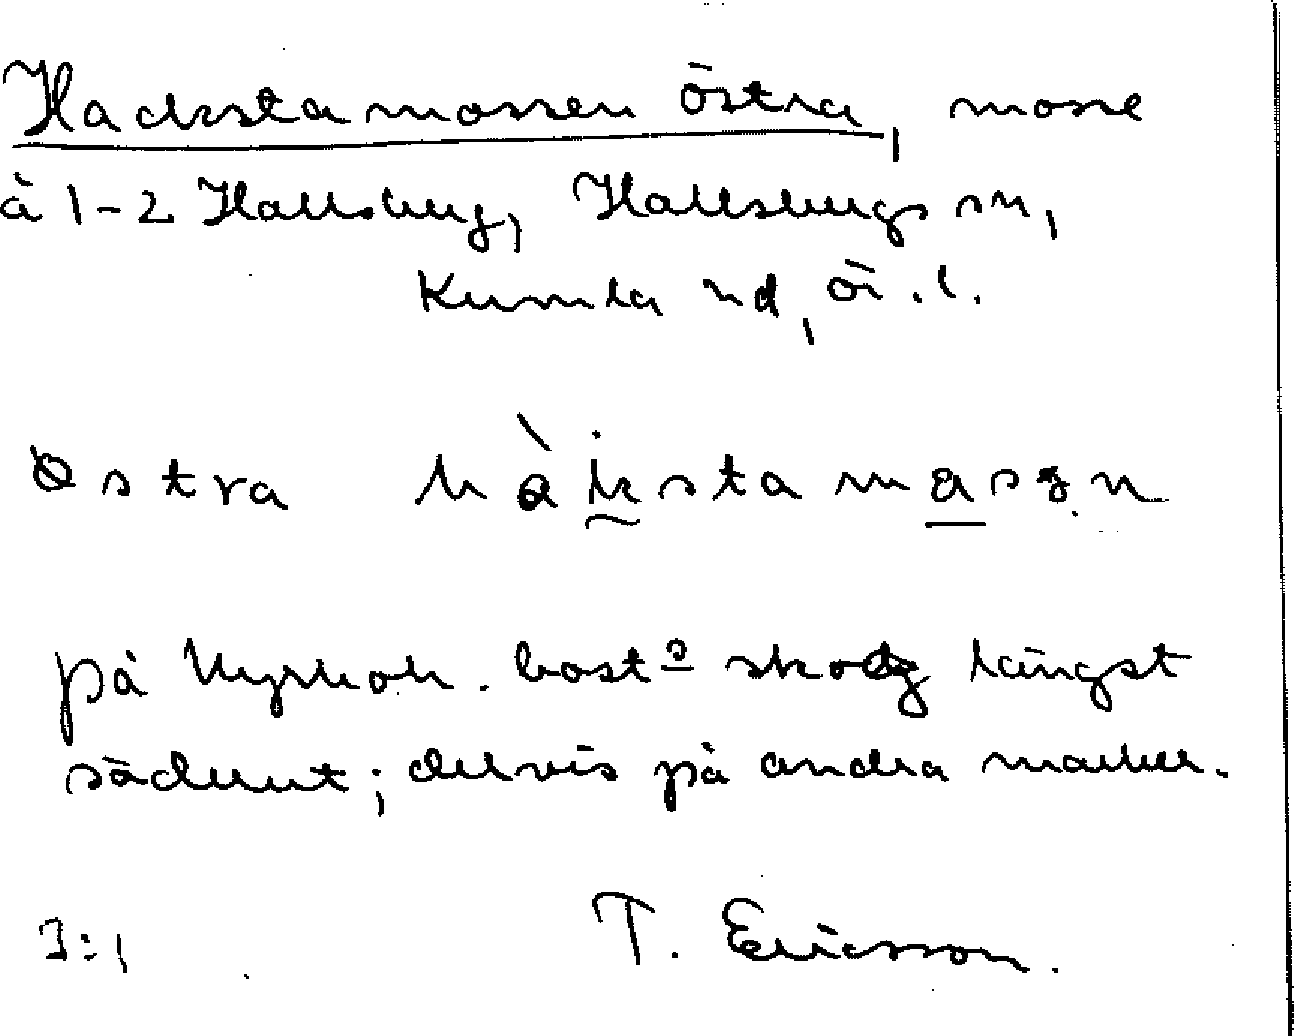 Hackstamossen östra, mosse
å 1-2 Hallsberg, Hallsbergs sn,
Kumla hd, Ör. l.
östra hàksta masen
på kyrkoh. bost:s skog längst
söderut; delvis på andra marker.
I:1
T. Ericsson.